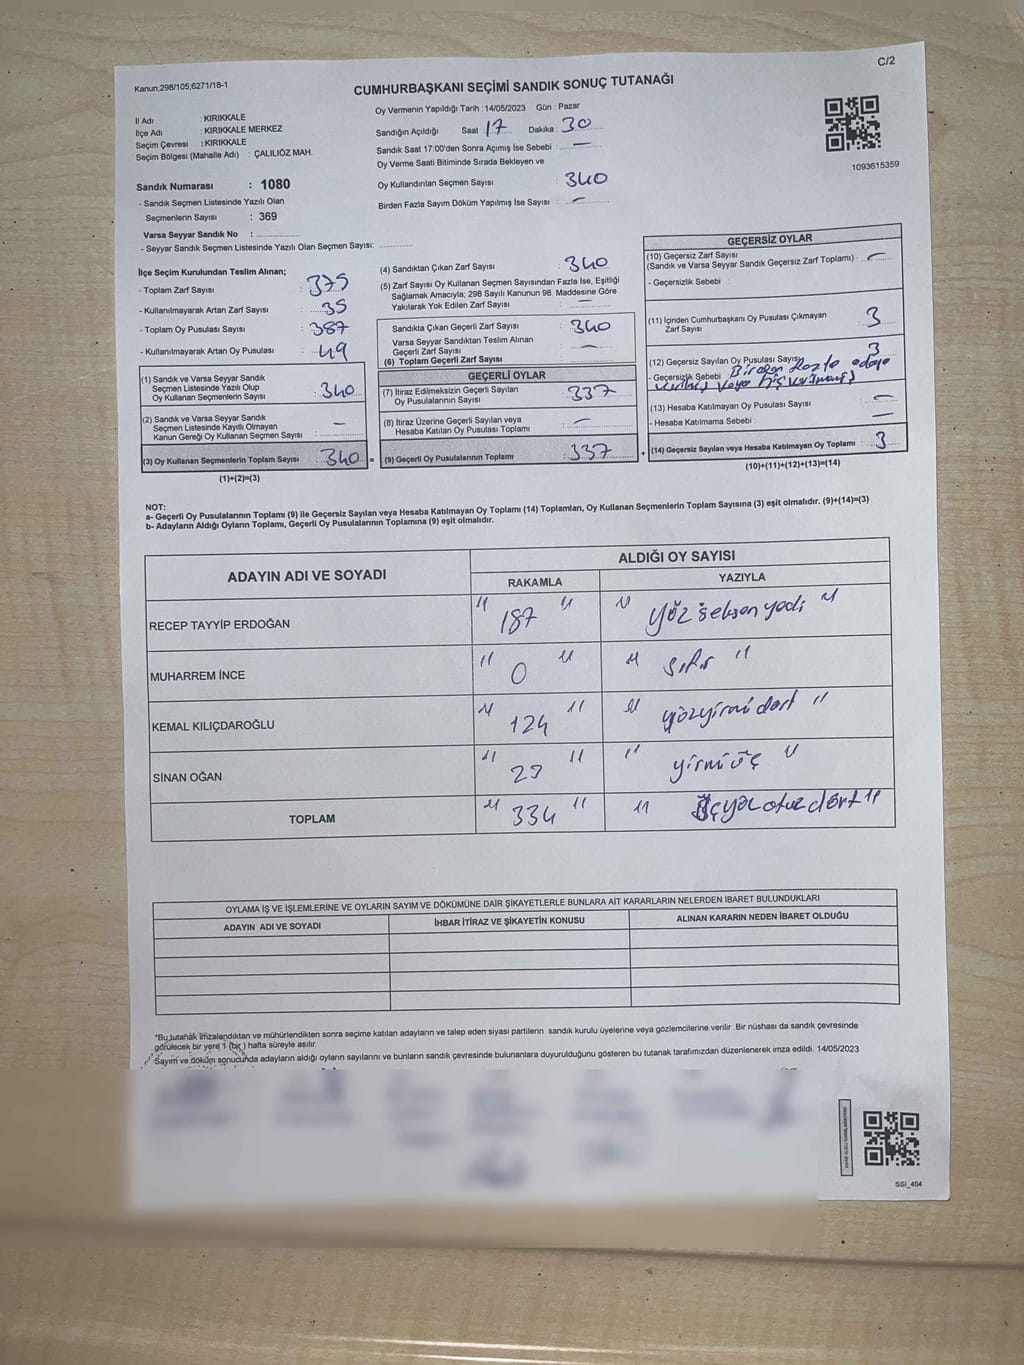 C/2
Kanun,298/105;6271/18-1
CUMHURBAŞKANI SEÇİMİ SANDIK SONUÇ TUTANAĞI
İl Adı : KIRIKKALE
İlçe Adı : KIRIKKALE MERKEZ
Seçim Çevresi : KIRIKKALE
Seçim Bölgesi (Mahalle Adı) : ÇALILIÖZ MAH.
Sandık Numarası : 1080
- Sandık Seçmen Listesinde Yazılı Olan
Seçmenlerin Sayısı : 369
Varsa Seyyar Sandık No : ..................
- Seyyar Sandık Seçmen Listesinde Yazılı Olan Seçmen Sayısı: ............
Oy Vermenin Yapıldığı Tarih : 14/05/2023 Gün : Pazar
Sandığın Açıldığı Saat : 17 Dakika : 30
Sandık Saat 17:00'den Sonra Açımış İse Sebebi : —
Oy Verme Saati Bitiminde Sırada Bekleyen ve
Oy Kullandırılan Seçmen Sayısı : 340
Birden Fazla Sayım Döküm Yapılmış İse Sayısı : —
1093615359
İlçe Seçim Kurulundan Teslim Alınan;
- Toplam Zarf Sayısı : 375
- Kullanılmayarak Artan Zarf Sayısı : 35
- Toplam Oy Pusulası Sayısı : 387
- Kullanılmayarak Artan Oy Pusulası : 49
(1) Sandık ve Varsa Seyyar Sandık
Seçmen Listesinde Yazılı Olup
Oy Kullanan Seçmenlerin Sayısı : 340
(2) Sandık ve Varsa Seyyar Sandık
Seçmen Listesinde Kayıtlı Olmayan
Kanun Gereği Oy Kullanan Seçmen Sayısı : —
(3) Oy Kullanan Seçmenlerin Toplam Sayısı : 340 =
(1)+(2)=(3)
(4) Sandıktan Çıkan Zarf Sayısı : 340
(5) Zarf Sayısı Oy Kullanan Seçmen Sayısından Fazla İse, Eşitliği
Sağlamak Amacıyla; 298 Sayılı Kanunun 98. Maddesine Göre
Yakılarak Yok Edilen Zarf Sayısı : —
Sandıkta Çıkan Geçerli Zarf Sayısı : 340
Varsa Seyyar Sandıktan Teslim Alınan
Geçerli Zarf Sayısı : —
(6) Toplam Geçerli Zarf Sayısı
GEÇERLİ OYLAR
(7) İtiraz Edilmeksizin Geçerli Sayılan
Oy Pusulalarının Sayısı : 337
(8) İtiraz Üzerine Geçerli Sayılan veya
Hesaba Katılan Oy Pusulası Toplamı : —
(9) Geçerli Oy Pusulalarının Toplamı : 337 +
GEÇERSİZ OYLAR
(10) Geçersiz Zarf Sayısı
(Sandık ve Varsa Seyyar Sandık Geçersiz Zarf Toplamı) : —
- Geçersizlik Sebebi :
(11) İçinden Cumhurbaşkanı Oy Pusulası Çıkmayan
Zarf Sayısı : 3
(12) Geçersiz Sayılan Oy Pusulası Sayısı : 3
- Geçersizlik Sebebi : Birden fazla adaya
verilmiş veya hiç verilmemiş
(13) Hesaba Katılmayan Oy Pusulası Sayısı : —
- Hesaba Katılmama Sebebi : —
(14) Geçersiz Sayılan veya Hesaba Katılmayan Oy Toplamı : 3
(10)+(11)+(12)+(13)=(14)
NOT:
a- Geçerli Oy Pusulalarının Toplamı (9) ile Geçersiz Sayılan veya Hesaba Katılmayan Oy Toplamı (14) Toplamları, Oy Kullanan Seçmenlerin Toplam Sayısına (3) eşit olmalıdır. (9)+(14)=(3)
b- Adayların Aldığı Oyların Toplamı, Geçerli Oy Pusulalarının Toplamına (9) eşit olmalıdır.
ADAYIN ADI VE SOYADI ALDIĞI OY SAYISI
RAKAMLA YAZIYLA
RECEP TAYYİP ERDOĞAN " 187 " " yöz seksen yedi "
MUHARREM İNCE " 0 " " sıfır "
KEMAL KILIÇDAROĞLU " 124 " " yözyirmi dört "
SİNAN OĞAN " 23 " " yirmi öç "
TOPLAM " 334 " " öçyöz otuz dört "
OYLAMA İŞ VE İŞLEMLERİNE VE OYLARIN SAYIM VE DÖKÜMÜNE DAİR ŞİKAYETLERLE BUNLARA AİT KARARLARIN NELERDEN İBARET BULUNDUKLARI
ADAYIN ADI VE SOYADI İHBAR İTİRAZ VE ŞİKAYETİN KONUSU ALINAN KARARIN NEDEN İBARET OLDUĞU
*Bu tutanak imzalandıktan ve mühürlendikten sonra seçime katılan adayların ve talep eden siyasi partilerin sandık kurulu üyelerine veya gözlemcilerine verilir .Bir nüshası da sandık çevresinde
görülecek bir yere 1 (bir ) hafta süreyle asılır.
Sayım ve döküm sonucunda adayların aldığı oyların sayılarını ve bunların sandık çevresinde bulunanlara duyurulduğunu gösteren bu tutanak tarafımızdan düzenlenerek imza edildi. 14/05/2023
SSİ_404